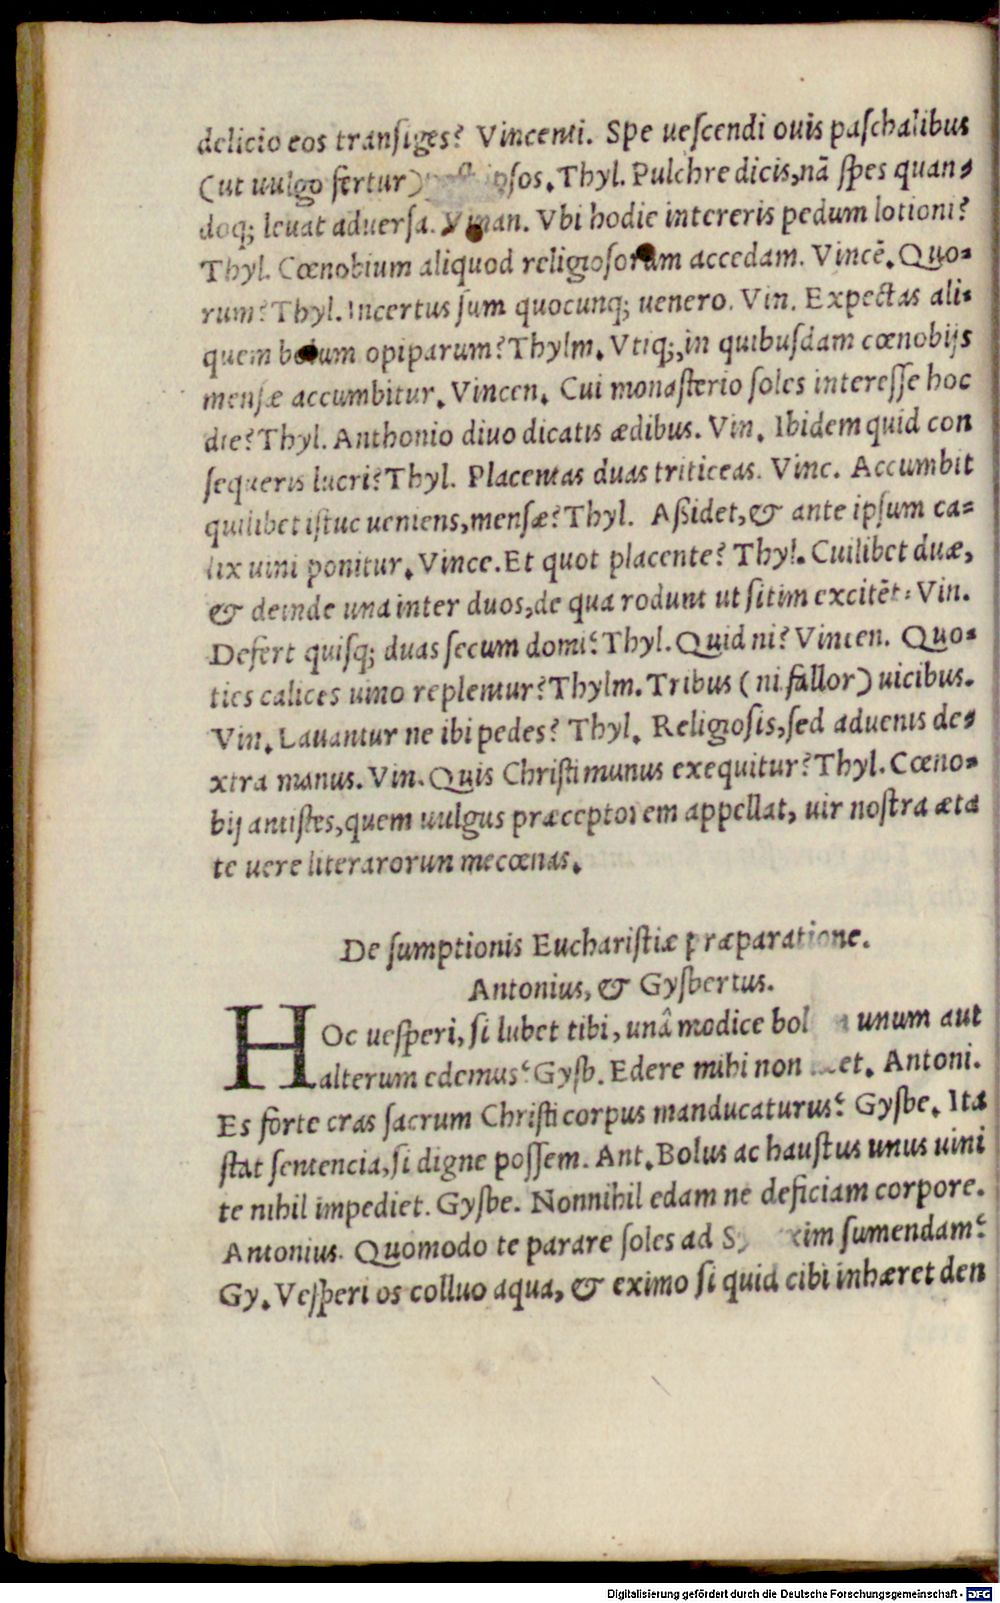 delicio eos transiges? Vincenti. Spe uescendi ouis paschalibus
(ut uulgo fertur) ipsos. Thyl. Pulchre dicis, nã spes quan-
doq; leuat aduersa. Vman. Vbi hodie intereris pedum lotioni?
Thyl. Cœnobium aliquod religiosorum accedam. Vincẽ. Quo-
rum? Thyl. Incertus sum quocunq; uenero. Vin. Expectas ali-
quem bolum opiparum? Thylm. Vtiq;, in quibusdam cœnobijs
mensæ accumbitur. Vincen. Cui monasterio soles interesse hoc
die? Thyl. Anthonio diuo dicatis ædibus. Vin. Ibidem quid con
sequeris lucri? Thyl. Placentas duas triticeas. Vinc. Accumbit
quilibet istuc ueniens, mensæ? Thyl. Aßidet, & ante ipsum ca-
lix uini ponitur. Vince. Et quot placente? Thyl. Cuilibet duæ,
& deinde una inter duos, de qua rodunt ut sitim excitẽt: Vin.
Defert quisq; duas secum domi? Thyl. Quid ni? Vincen. Quo-
ties calices uino replentur? Thylm. Tribus (ni fallor) uicibus.
Vin. Lauantur ne ibi pedes? Thyl. Religiosis, sed aduenis de-
xtra manus. Vin. Quis Christi munus exequitur? Thyl. Cœno-
bij antistes, quem uulgus præceptorem appellat, uir nostra æta
te uere literarorun mecœnas.
De sumptionis Eucharistiæ præparatione.
Antonius, & Gysbertus.
HOc uesperi, si lubet tibi, unâ modice bol unum aut
alterum edemus? Gysb. Edere mihi non et. Antoni.
Es forte cras sacrum Christi corpus manducaturus? Gysbe. Ita
stat sentencia, si digne possem. Ant. Bolus ac haustus unus uini
te nihil impediet. Gysbe. Nonnihil edam ne deficiam corpore.
Antonius. Quomodo te parare soles ad sumendam?
Gy. Vesperi os colluo aqua, & eximo si quid cibi inhæret den
Digitalisierung gefördert durch die Deutsche Forschungsgemeinschaft - DFG